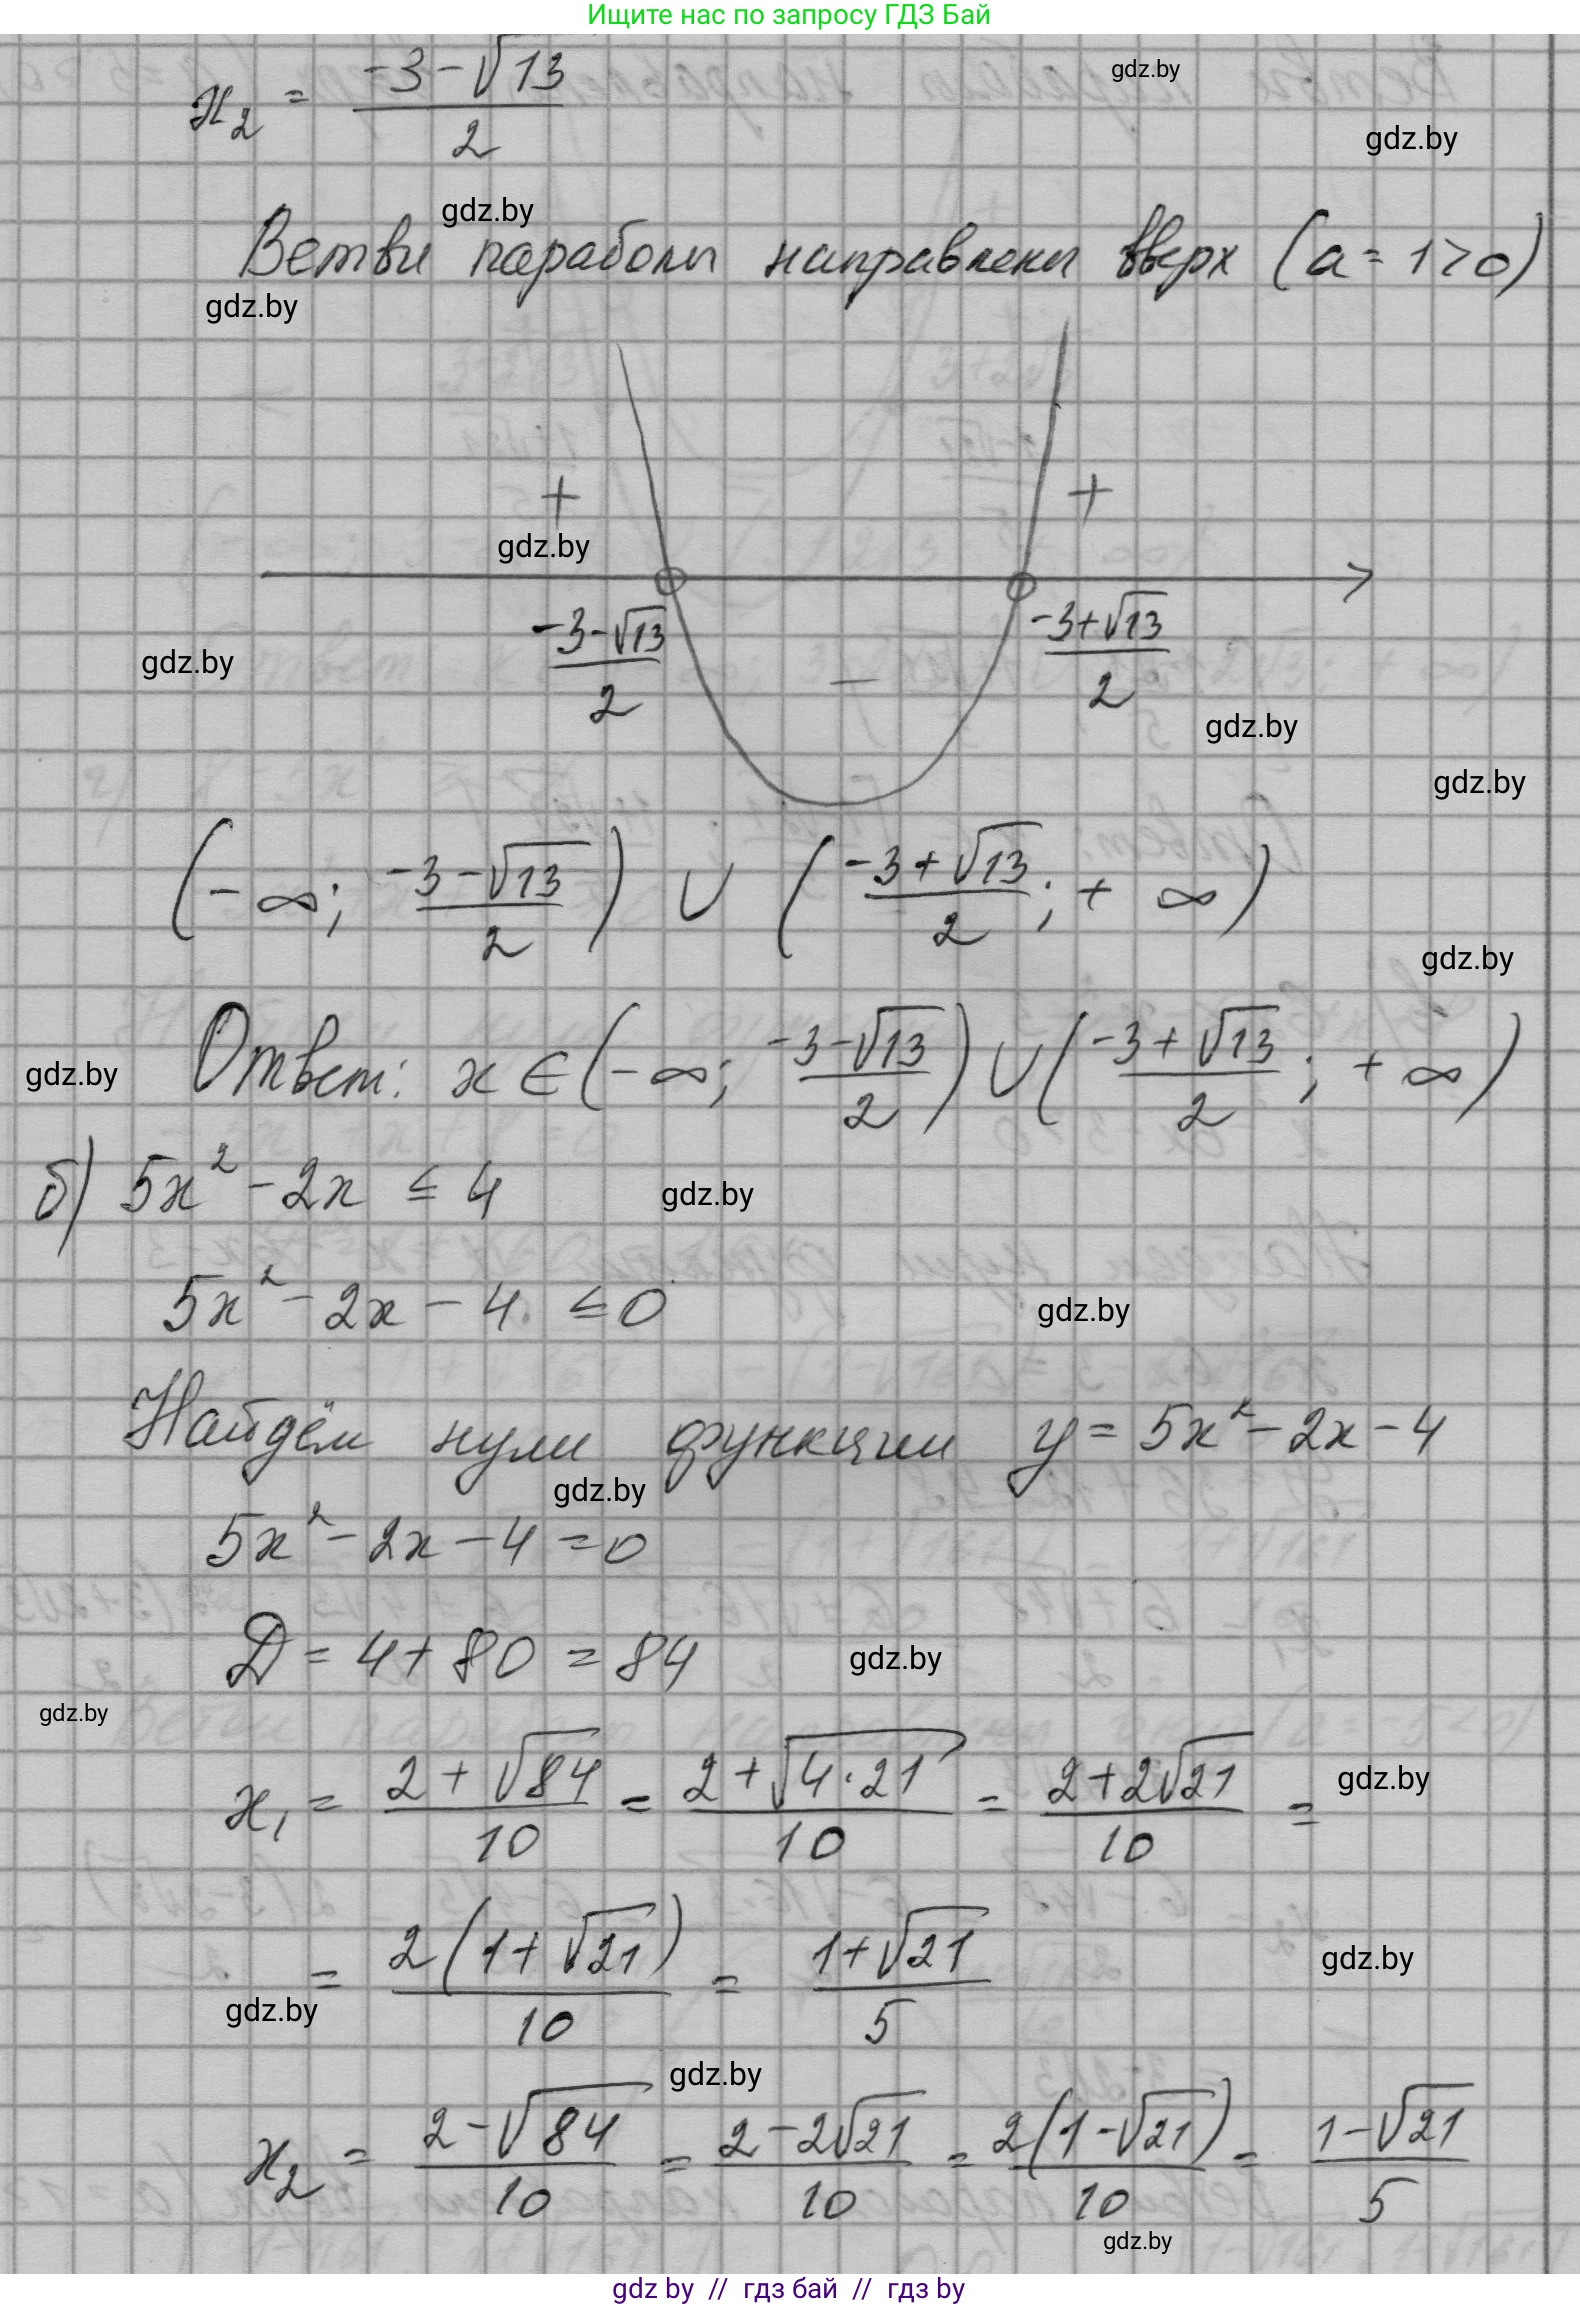 Ищите нас по запросу ГДЗ Бай
x₂ = (-3-√13)/2
gdz.by
gdz.by
gdz.by
Ветви параболы направлены вверх (a = 1>0)
gdz.by
+ +
gdz.by
(-3-√13)/2 (-3+√13)/2
gdz.by
−
gdz.by
gdz.by
(-∞; (-3-√13)/2) ∪ ((-3+√13)/2; +∞)
gdz.by
Ответ: x ∈ (-∞; (-3-√13)/2) ∪ ((-3+√13)/2; +∞)
gdz.by
б) 5x² - 2x ≤ 4
gdz.by
5x² - 2x - 4 ≤ 0
gdz.by
Найдём нули функции y = 5x² - 2x - 4
gdz.by
5x² - 2x - 4 = 0
D = 4 + 80 = 84
gdz.by
gdz.by
x₁ = (2+√84)/10 = (2+√4·21)/10 = (2+2√21)/10 =
gdz.by
= 2(1+√21)/10 = (1+√21)/5
gdz.by
gdz.by
gdz.by
x₂ = (2-√84)/10 = (2-2√21)/10 = 2(1-√21)/10 = (1-√21)/5
gdz.by
gdz by // гдз бай // гдз by